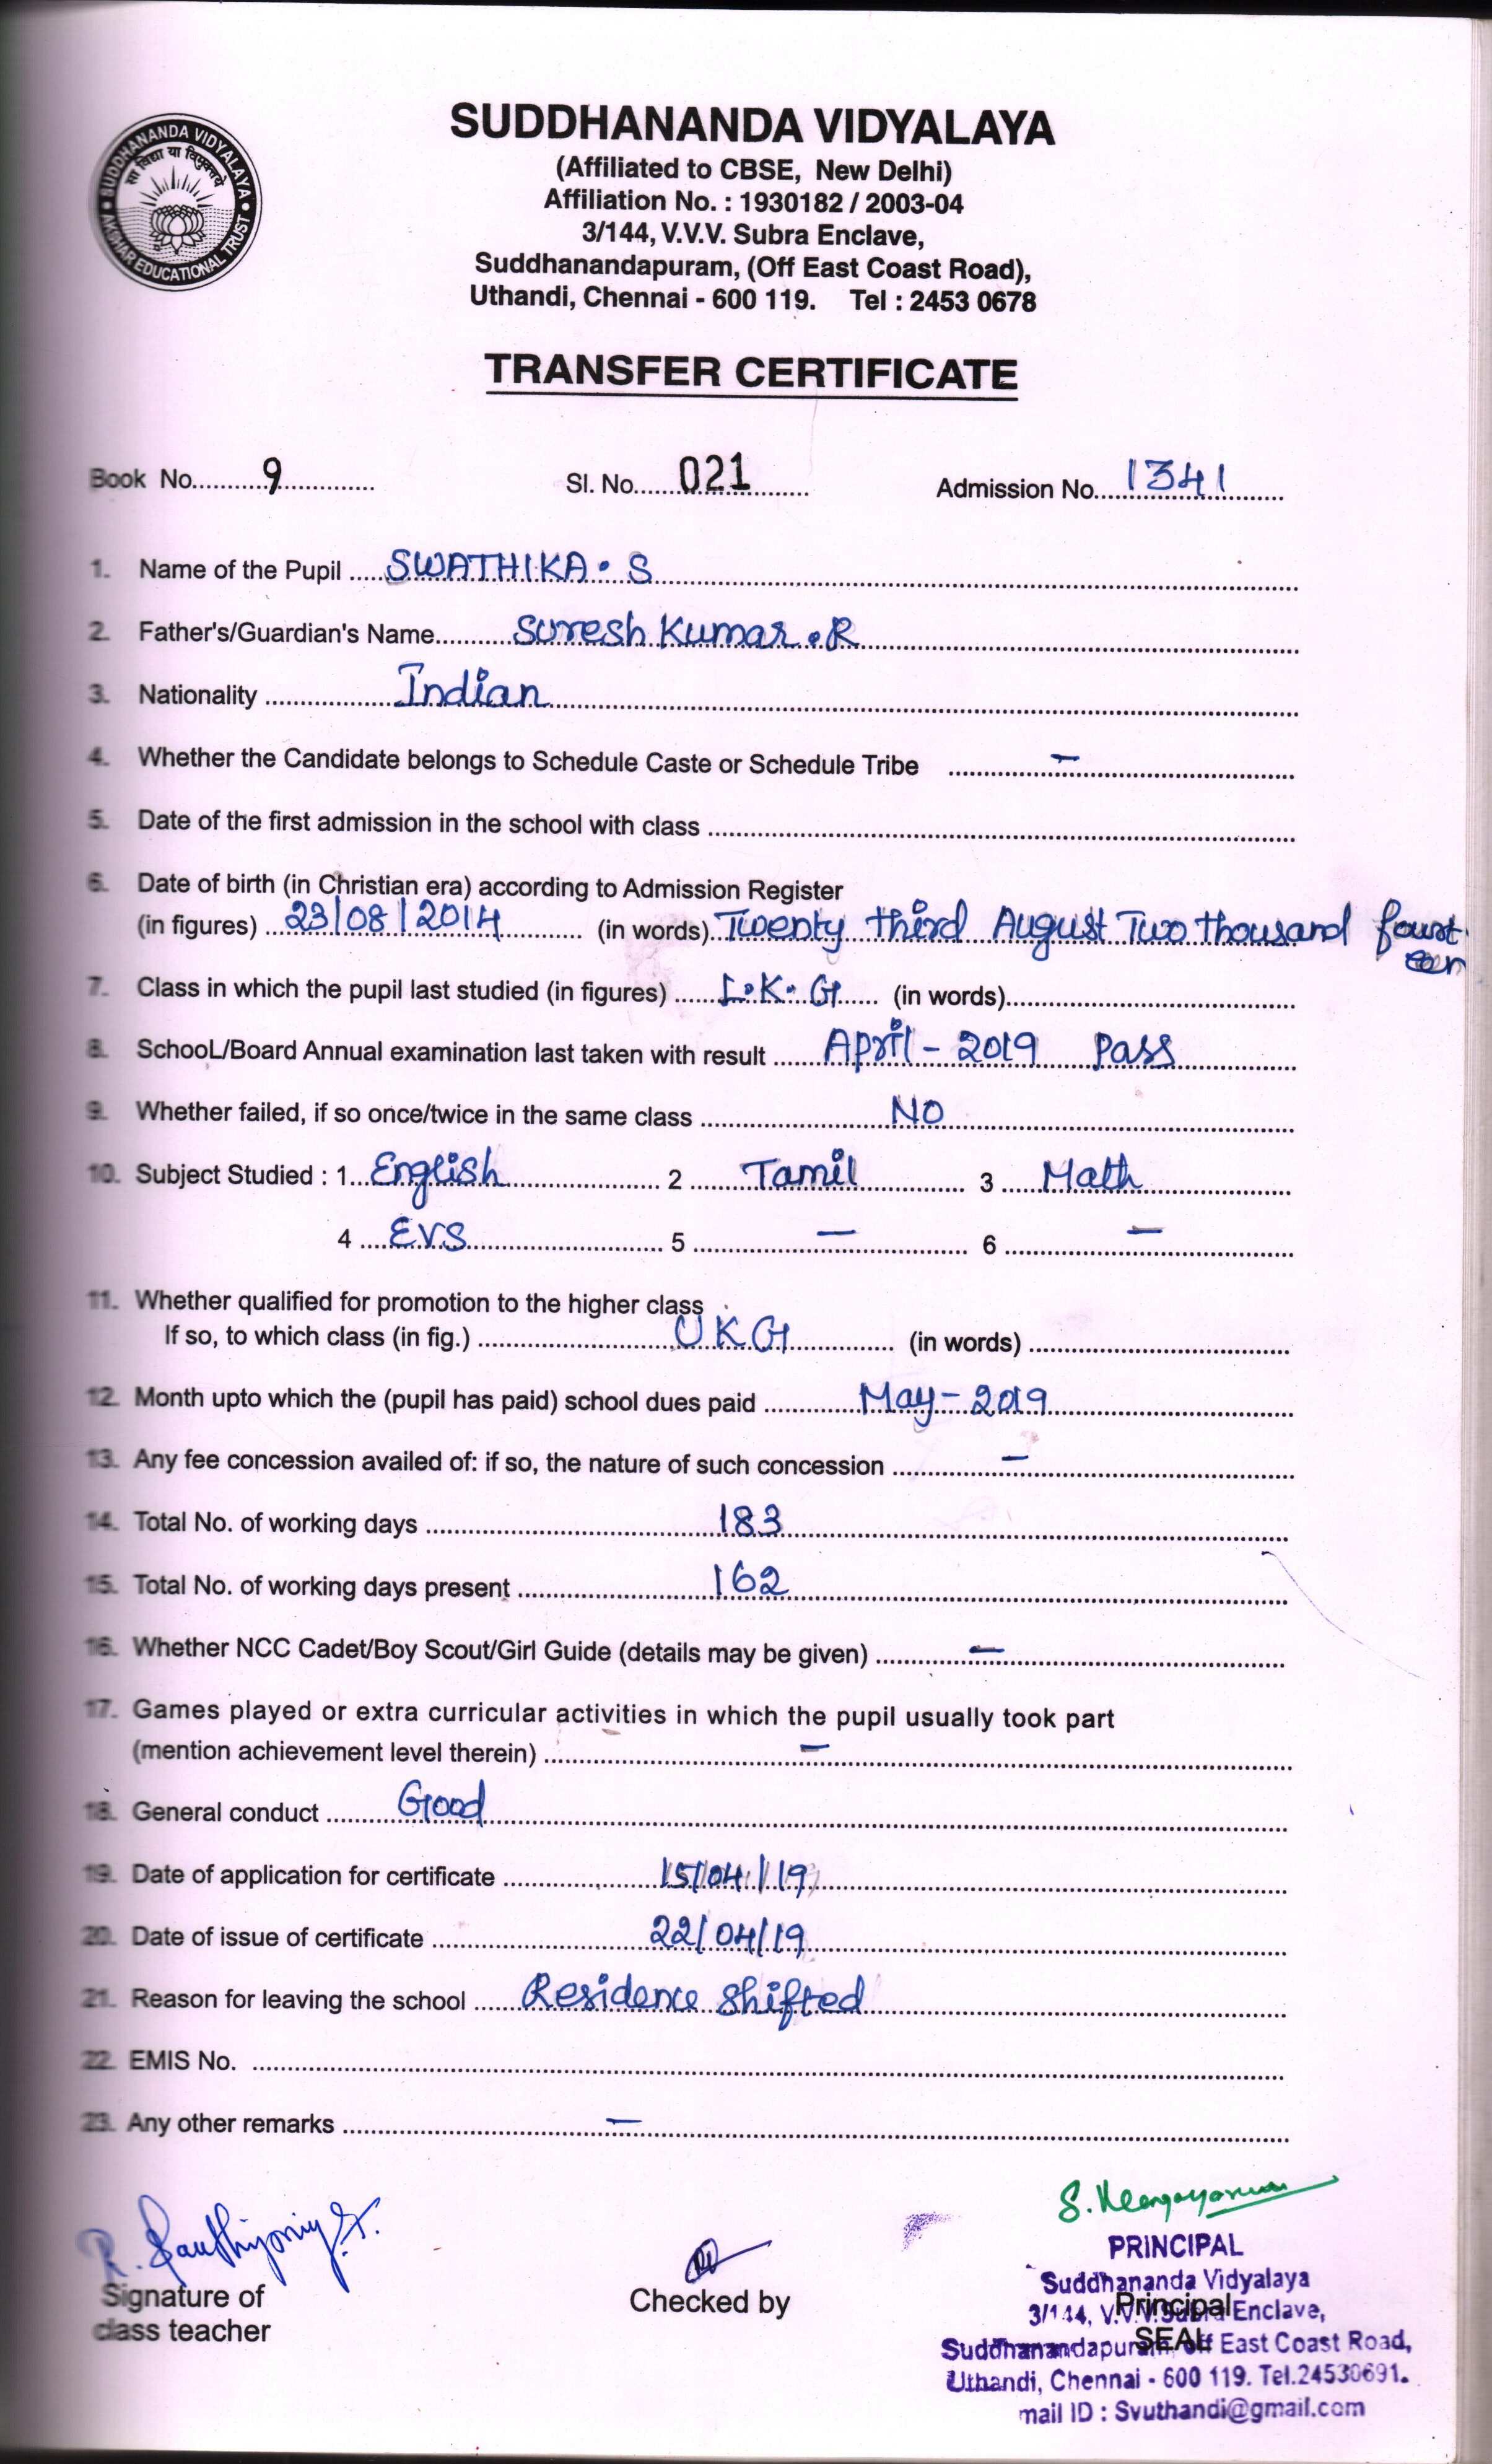 SUDDHANANDA VIDYALAYA
SUDDHANANDA VIDYALAYA
सा विद्या या विमुक्तये
EDUCATIONAL TRUST
(Affiliated to CBSE, New Delhi)
Affiliation No. : 1930182 / 2003-04
3/144, V.V.V. Subra Enclave,
Suddhanandapuram, (Off East Coast Road),
Uthandi, Chennai - 600 119. Tel : 2453 0678
TRANSFER CERTIFICATE
Book No. 9 Sl. No. 021 Admission No. 1341
1. Name of the Pupil SWATHIKA. S
2. Father's/Guardian's Name Suresh Kumar. R
3. Nationality Indian
4. Whether the Candidate belongs to Schedule Caste or Schedule Tribe –
5. Date of the first admission in the school with class
6. Date of birth (in Christian era) according to Admission Register
(in figures) 23/08/2014 (in words) Twenty third August Two thousand fourt
een
7. Class in which the pupil last studied (in figures) L.K.G (in words)
8. SchooL/Board Annual examination last taken with result April - 2019 Pass
9. Whether failed, if so once/twice in the same class NO
10. Subject Studied : 1 English 2 Tamil 3 Math
4 EVS 5 – 6 –
11. Whether qualified for promotion to the higher class
If so, to which class (in fig.) UKG (in words)
12. Month upto which the (pupil has paid) school dues paid May - 2019
13. Any fee concession availed of: if so, the nature of such concession –
14. Total No. of working days 183
15. Total No. of working days present 162
16. Whether NCC Cadet/Boy Scout/Girl Guide (details may be given) –
17. Games played or extra curricular activities in which the pupil usually took part
(mention achievement level therein) –
18. General conduct Good
19. Date of application for certificate 15/04/19
20. Date of issue of certificate 22/04/19
21. Reason for leaving the school Residence shifted
22. EMIS No.
23. Any other remarks –
Signature of
class teacher
Checked by
Principal
SEAL
PRINCIPAL
Suddhananda Vidyalaya
3/144, V.V.V. Subra Enclave,
Suddhanandapuram, Off East Coast Road,
Uthandi, Chennai - 600 119. Tel.24530691.
mail ID : Svuthandi@gmail.com